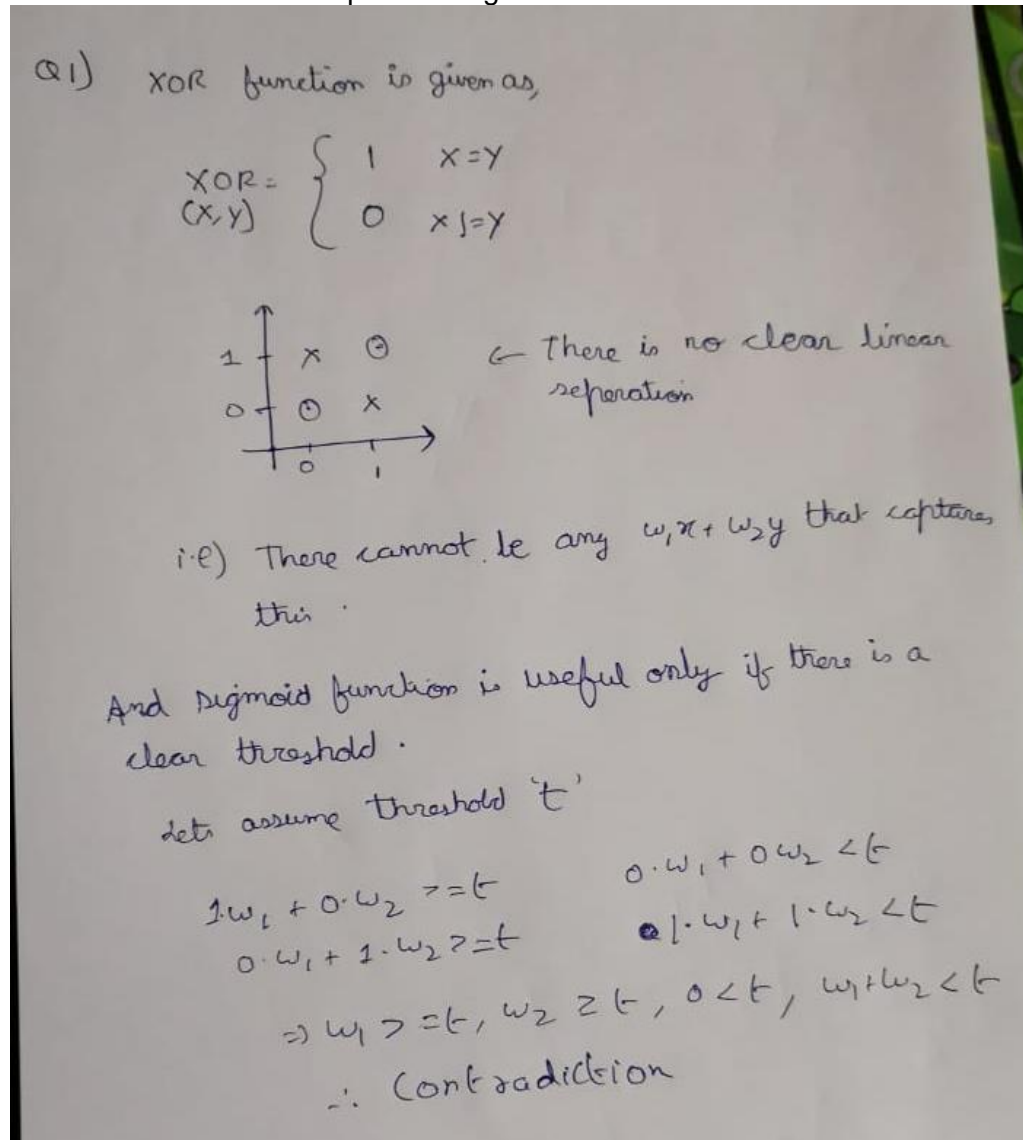 Q1) XOR function is given as,
XOR = { 1 X=Y
(X,Y) 0 X!=Y
1 x ⊙ ← There is no clear linear
seperation
0 ⊙ x
0 1
i.e) There cannot be any w₁x + w₂y that captures
this.
And sigmoid function is useful only if there is a
clear threshold.
Lets assume threshold 't'
1.w₁ + 0.w₂ >=t 0.w₁ + 0w₂ <t
0.w₁ + 1.w₂ >=t 1.w₁ + 1.w₂ <t
=> w₁ >=t, w₂ ≥ t, 0<t, w₁+w₂ <t
∴ Contradiction